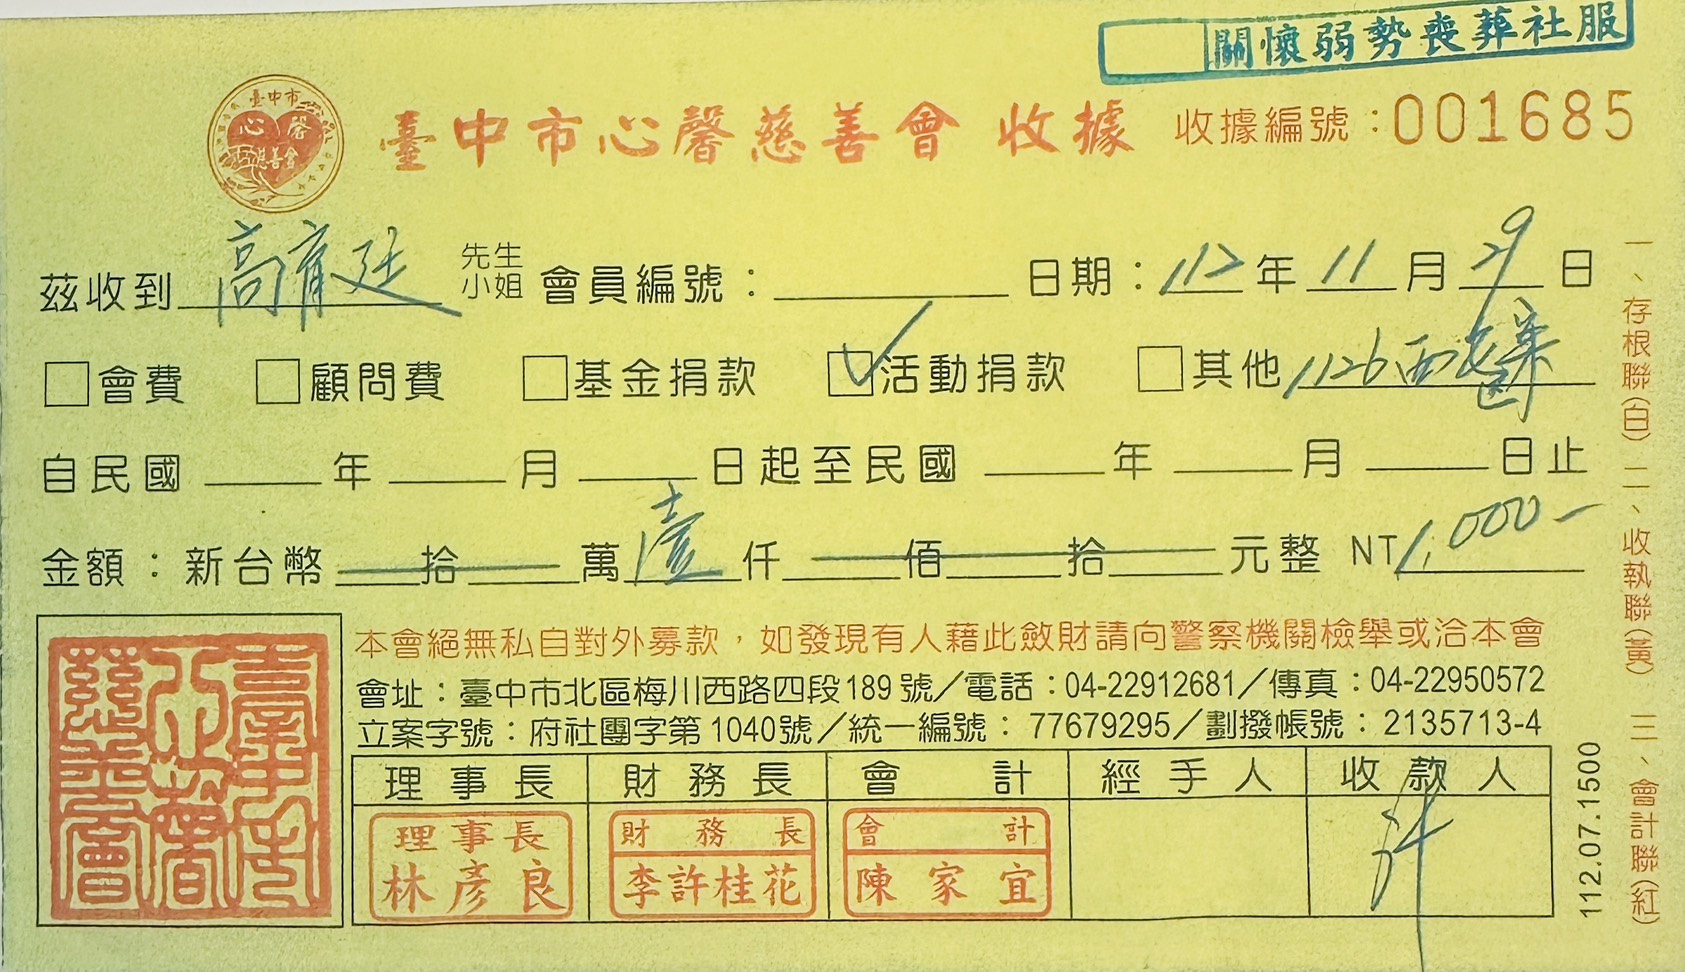 關懷弱勢喪葬社服
臺中市
心馨
慈善會
臺中市心馨慈善會 收據 收據編號：001685
茲收到 高育廷 先生 小姐 會員編號： 日期：112年11月29日
會費 顧問費 基金捐款 ✓活動捐款 其他 1126西屯
自民國 年 月 日起至民國 年 月 日止
金額：新台幣 拾 萬 壹 仟 佰 拾 元整 NT 1,000-
本會絕無私自對外募款，如發現有人藉此斂財請向警察機關檢舉或洽本會
會址：臺中市北區梅川西路四段189號／電話：04-22912681／傳真：04-22950572
立案字號：府社團字第1040號／統一編號：77679295／劃撥帳號：2135713-4
理事長 財務長 會計 經手人 收款人
理事長 財務長 會計
林彥良 李許桂花 陳家宜
臺中市心馨慈善會
一、存根聯(白) 二、收執聯(黃) 三、會計聯(紅)
112.07.1500